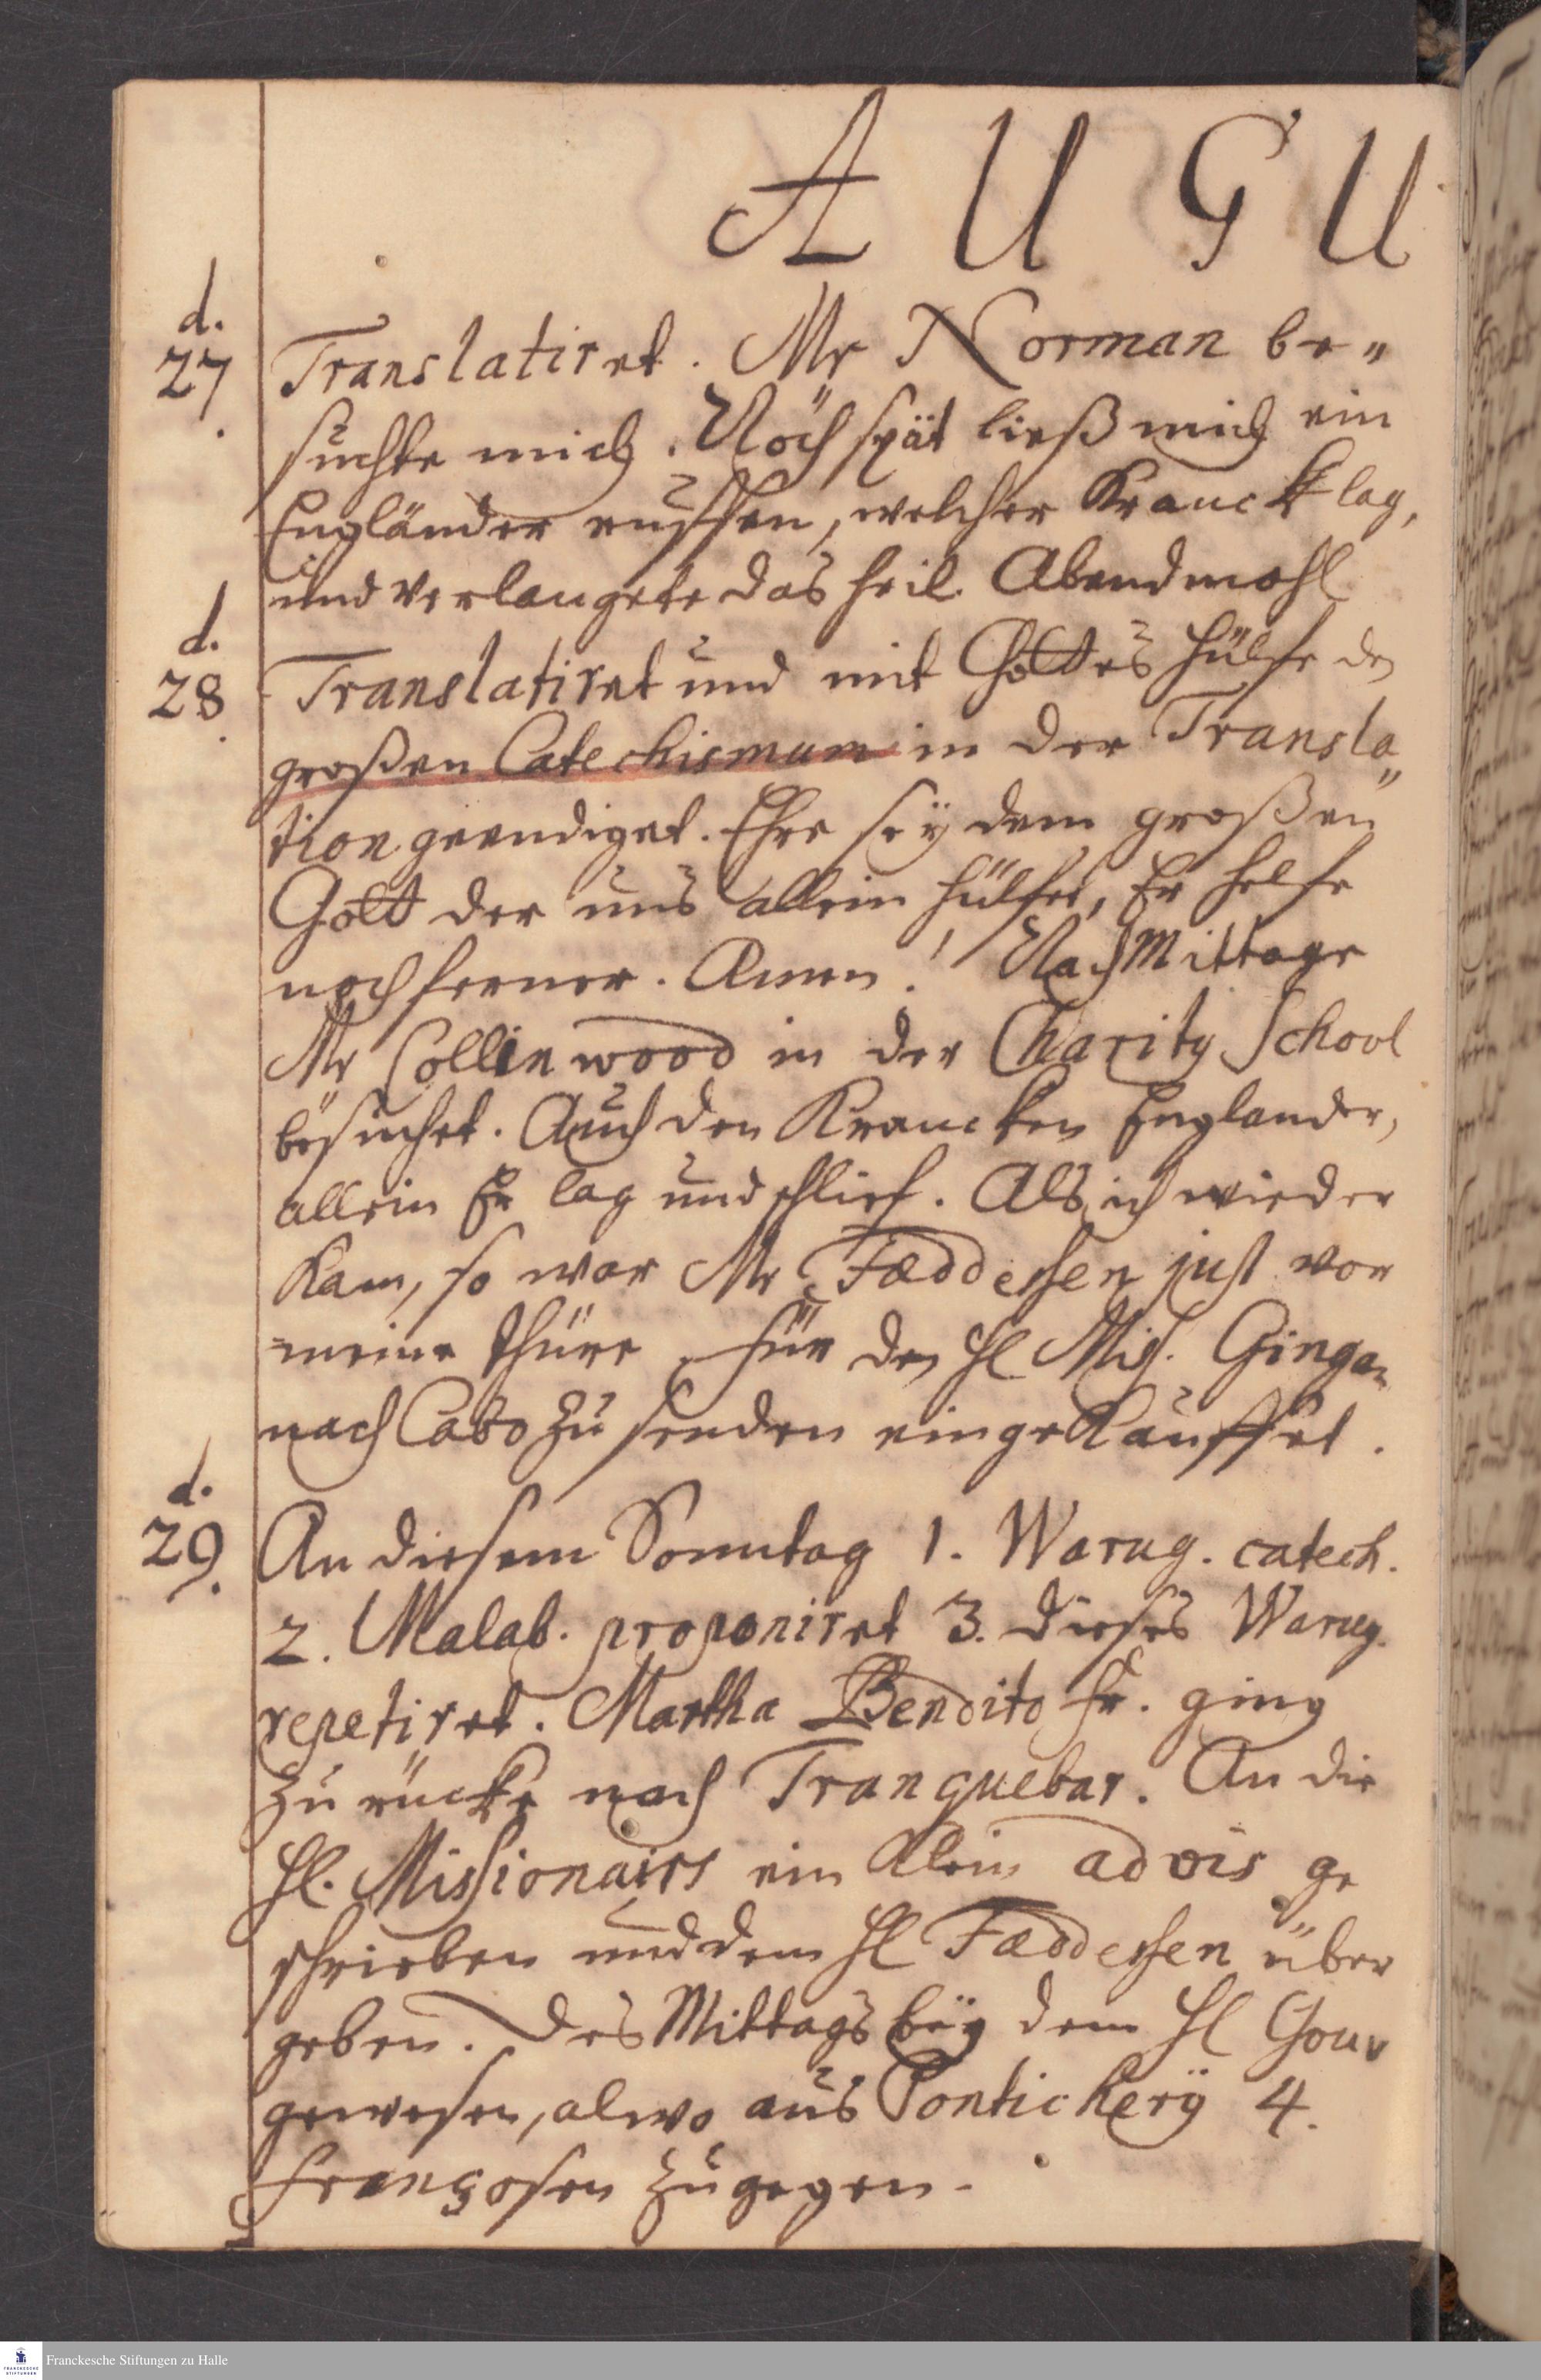 A U G U
d.
27.
Translatiret. Mr Norman be„
suchte mich. Noch spät ließ mich ein
Engländer ruffen, welcher Kranck lag,
und verlangete das heil. Abendmahl
d.
28.
Translatiret und mit Gottes Hülfe den
großen Catechismum in der Transla„
tion geendiget. Ehre seÿ dem großen
Gott der uns allein hülfet, Er helfe
noch ferner. Amen! Nach Mittage
Mr Collinwood in der Charity School
besuchet. Auch den Krancken Englander,
allein Er lag und schlief. Als ich wieder
kam, so war Mr Fæddersen just vor
meine Thüre. für den Hl Miss. Ginga
nach Cabo zu senden eingekauffet.
d.
29.
An diesem Sonntag 1. Warug. catech.
2. Malab. proponiret 3. dieses Warug.
repetiret. Martha Bendito fr. ging
zurücke nach Tranquebar. An die
Hl. Missionairs ein klein advis ge
schrieben und dem Hl Fæddersen über
geben. des Mittags beÿ dem Hl Gouv
gewesen, alwo aus Ponticherÿ 4.
Françosen zugegen.
Franckesche Stiftungen zu Halle
FRANCKESCHE
STIFTUNGEN